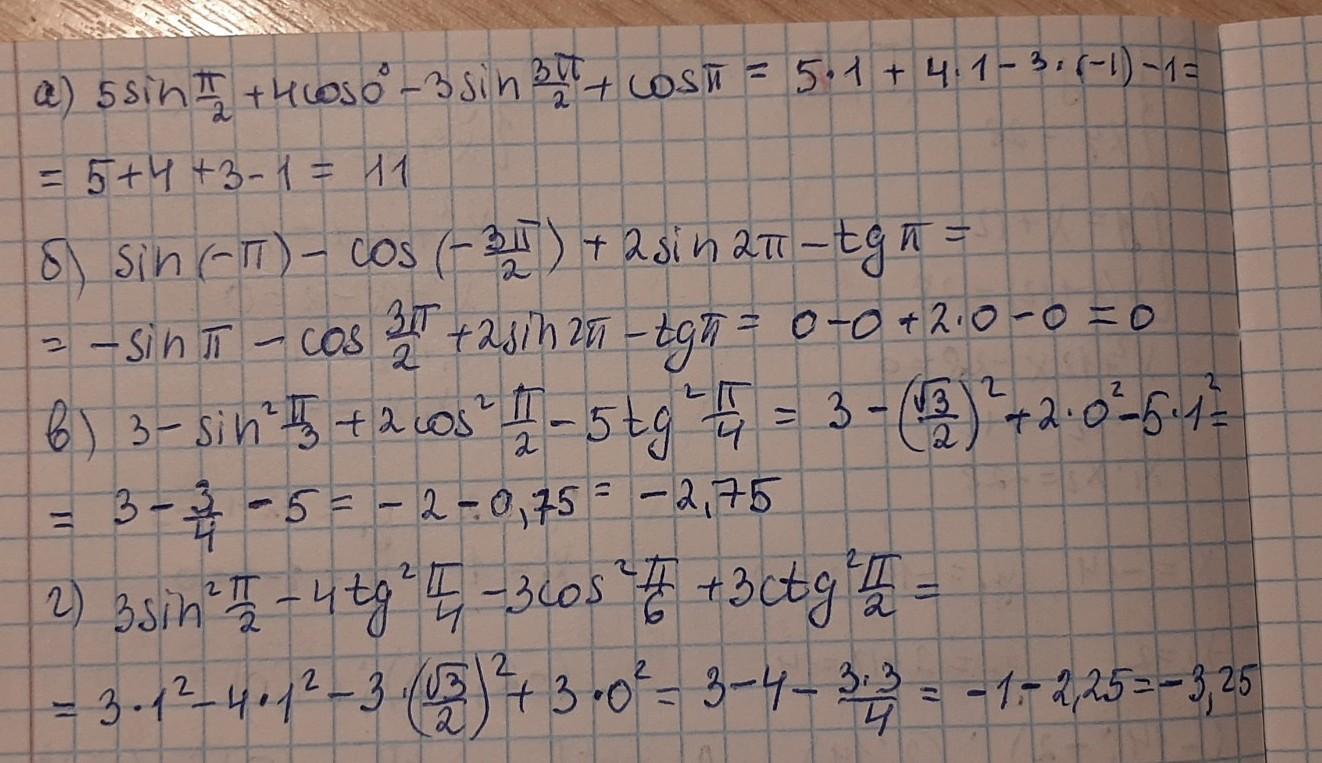 а) 5sin π/2 + 4cos0° - 3sin 3π/2 + cosπ = 5·1 + 4·1 - 3·(-1) - 1 =
= 5+4+3-1 = 11
б) sin(-π) - cos(-3π/2) + 2sin2π - tgπ =
= -sinπ - cos 3π/2 + 2sin2π - tgπ = 0-0+2·0-0=0
в) 3 - sin² π/3 + 2cos² π/2 - 5tg² π/4 = 3 - (√3/2)² + 2·0² - 5·1² =
= 3 - 3/4 - 5 = -2 - 0,75 = -2,75
г) 3sin² π/2 - 4tg² π/4 - 3cos² π/6 + 3ctg² π/2 =
= 3·1² - 4·1² - 3·(√3/2)² + 3·0² = 3-4 - 3·3/4 = -1 - 2,25 = -3,25